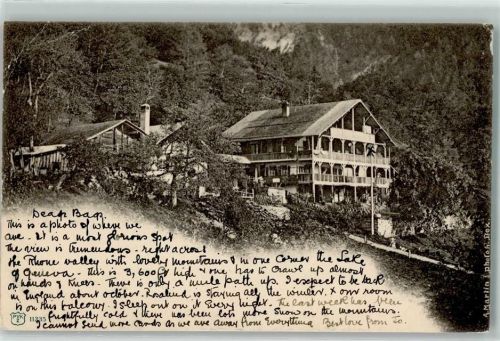 Dear Bar,
This is a photo of where we
are. It is a most glorious spot
the view is tremendous – right across
the Rhone valley with lovely mountains & in one corner the Lake
of Geneva – This is 3,600 ft high & one has to crawl up almost
on hands & knees. There is only a mule path up. I expect to be back
in England about October. Rosalind is staying all the winter. & our room
is on this balcony. I sleep out on it every night. The last week has been
frightfully cold & there has been lots more snow on the mountains.
I cannot send more cards as we are away from everything Best love from Jo.
11235